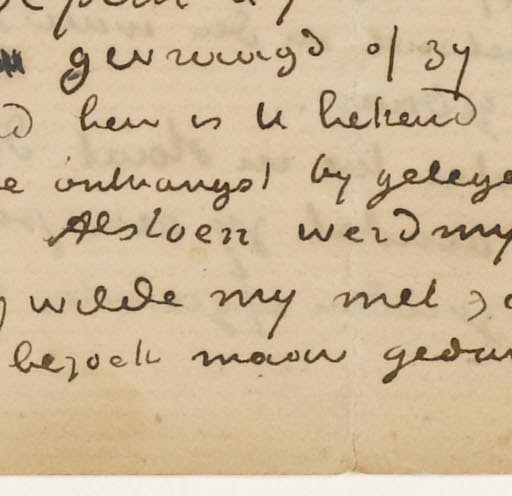 gevraagd of zy
hen is U bekend
ontvangst by gelege
Alstoen werd my
wilde my met
bezoek maar gedu